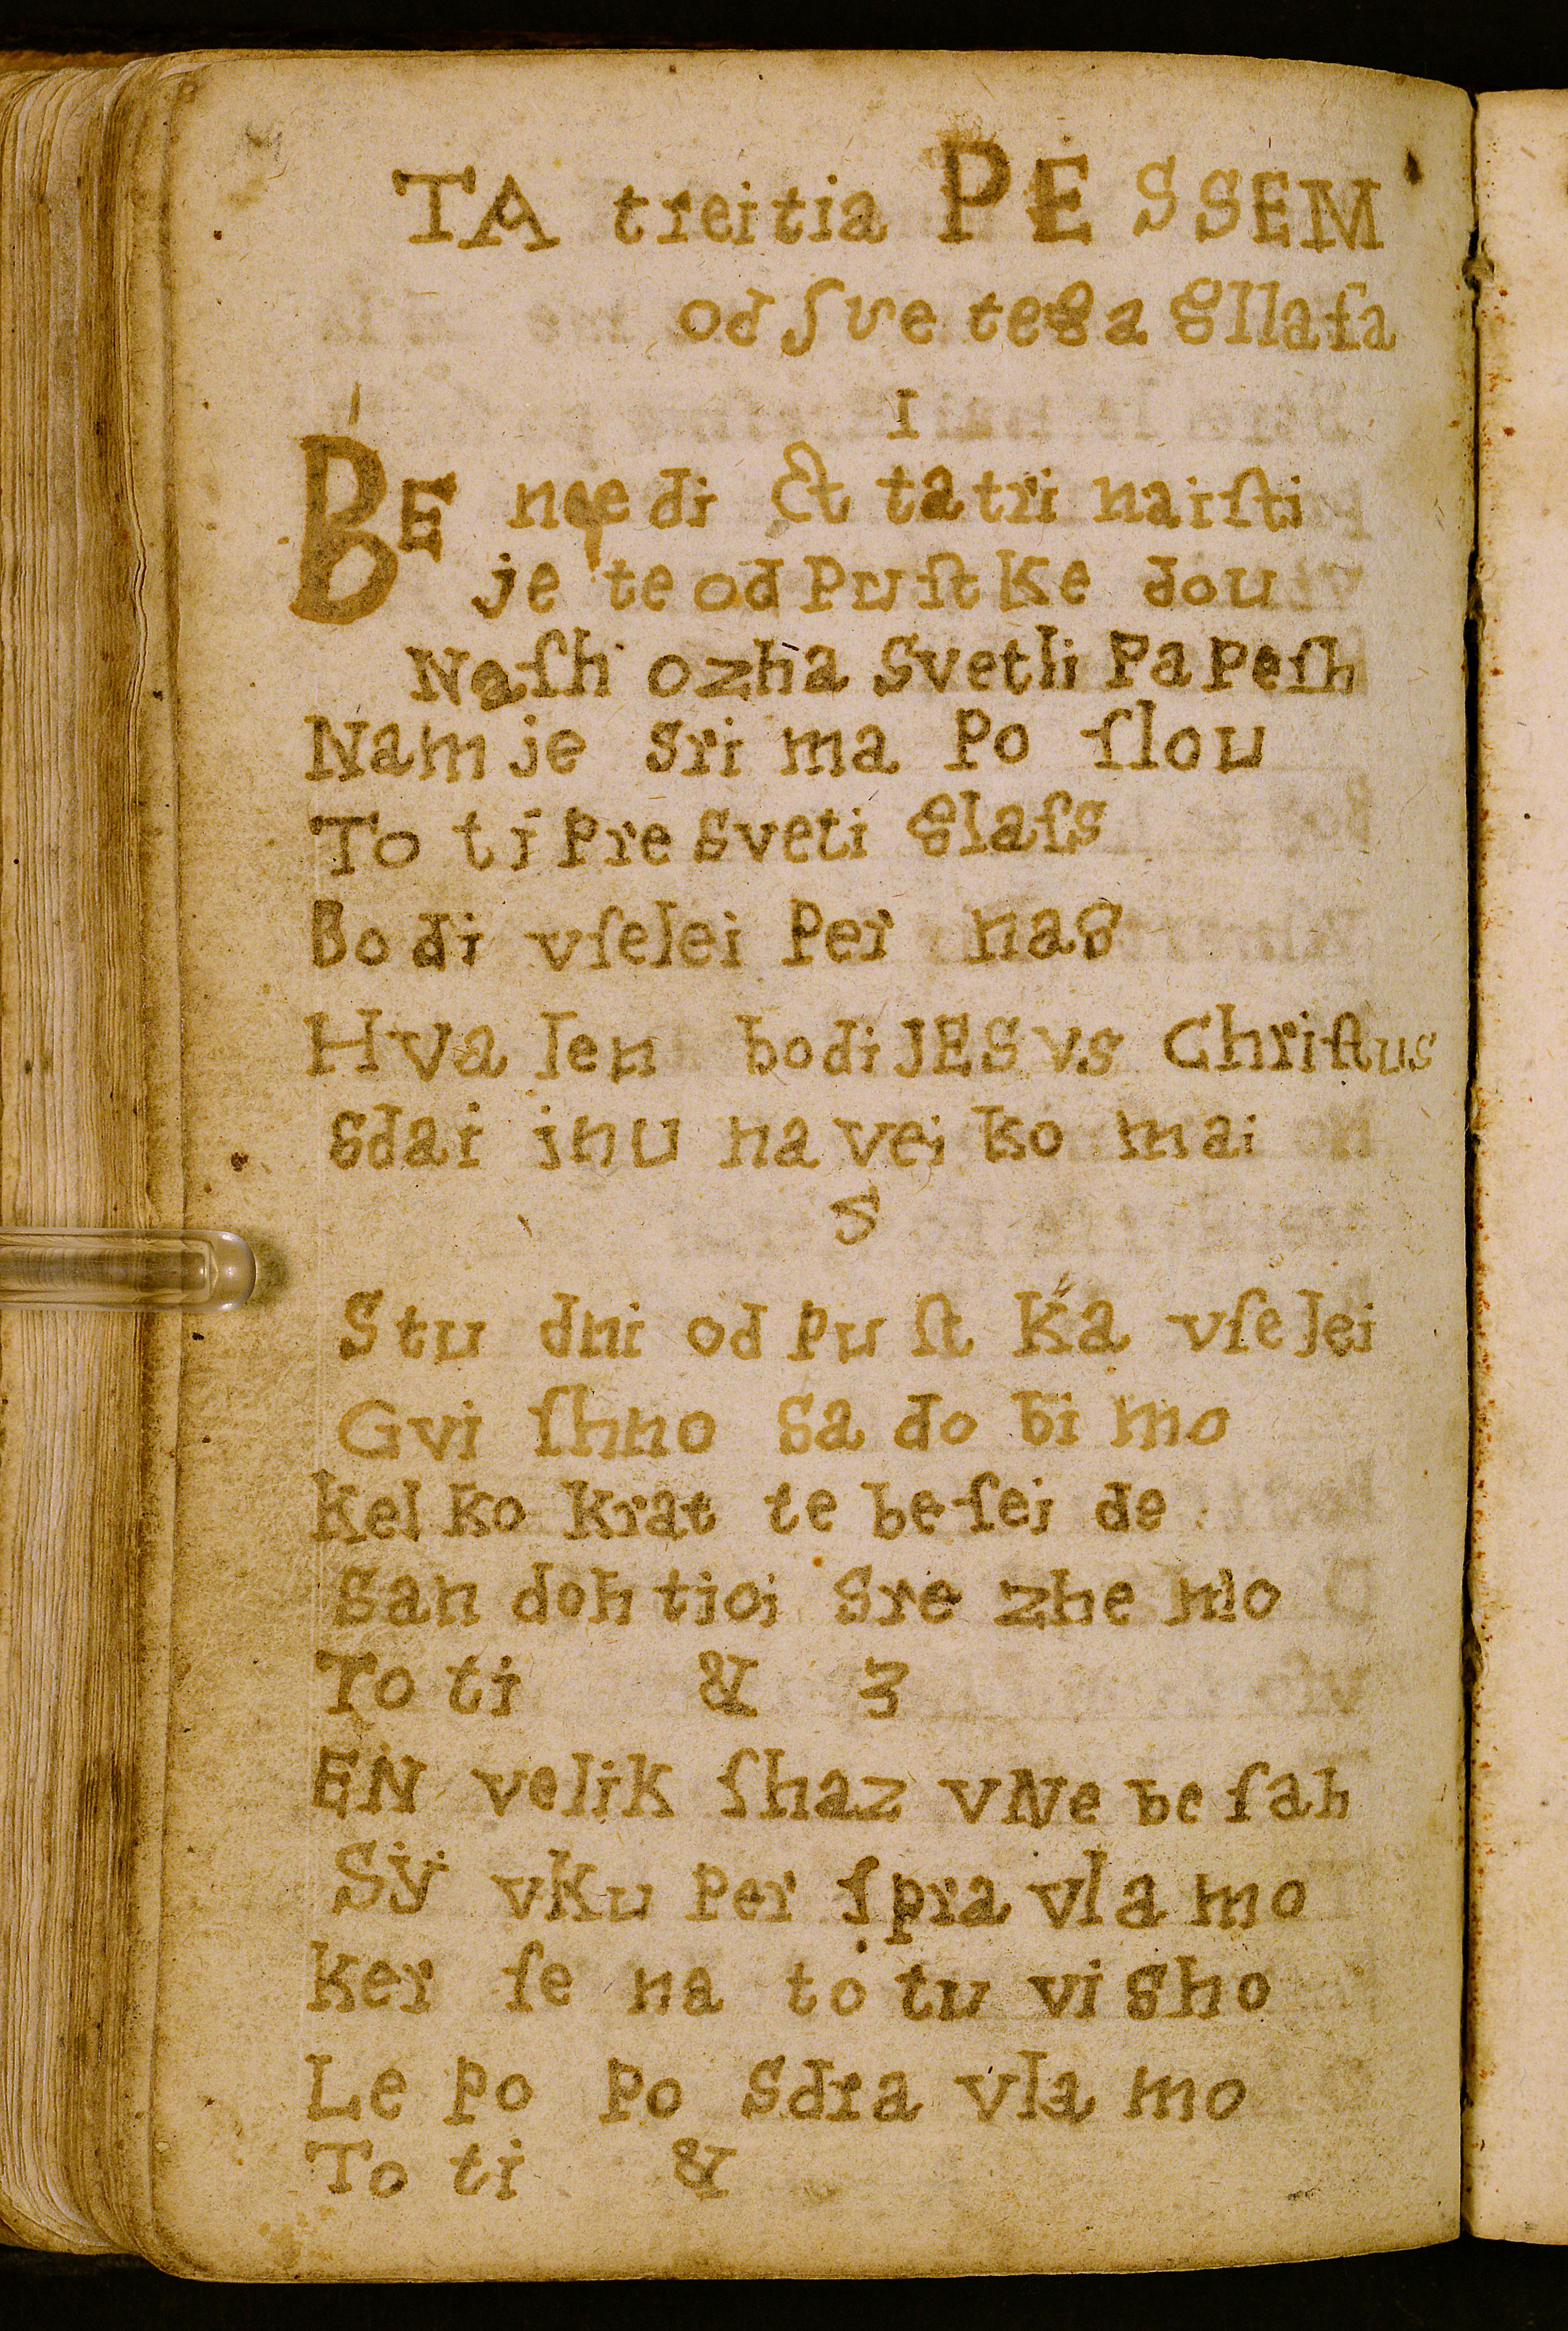 TA treitia PESSEM
od ſvetega gllaſa
1
BE nedict ta trinaiſti
je te odpuſtke dou
Naſh ozha Svetli Papeſh
Nam je srima poſlou
To ti preſveti glaſs
Bodi vſelei per nas
Hvalen bodi JESVS Chriſtus
sdai inu naveikomai
S
Studni odpuſtka vſelei
Gviſhno sadobimo
kelkokrat te beſeide
san dohtioi srezhemo
To ti & 3
EN velik ſhaz vNebeſah
Sÿ vkuper ſpravlamo
ker ſe na totu viſho
Lepo posdravlamo
To ti &